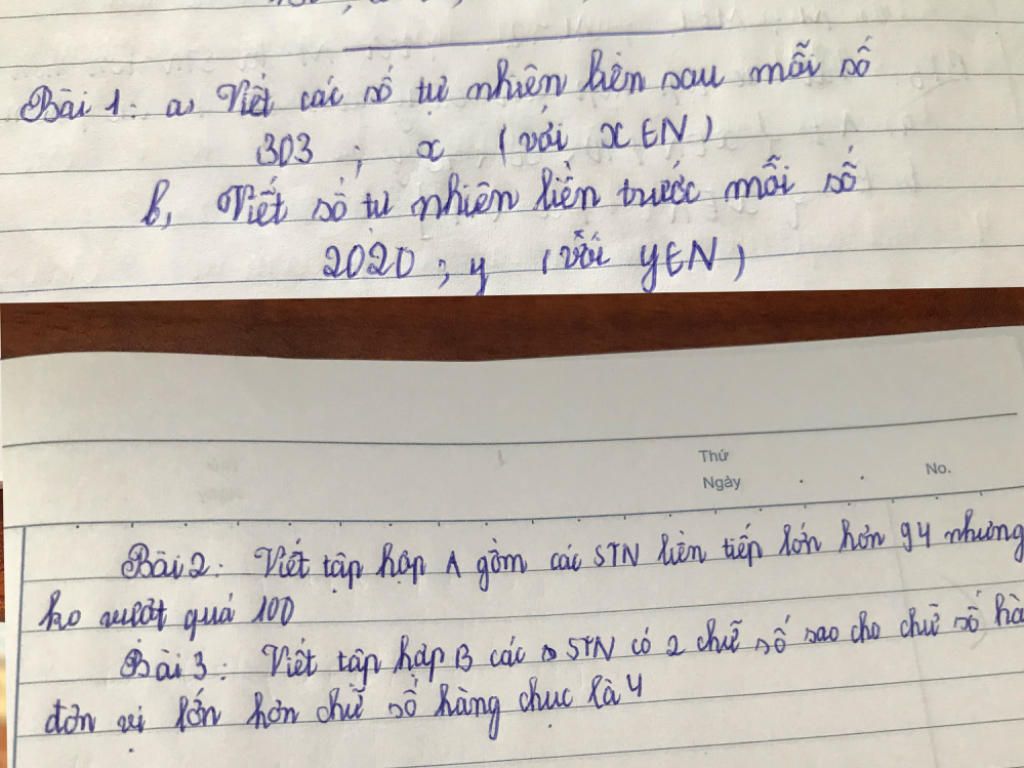 Bài 1: a, Viết các số tự nhiên liền sau mỗi số
303 ; x (với x∈N)
b, Viết số tự nhiên liền trước mỗi số
2020 ; y (với y∈N)
Thứ
Ngày
No.
Bài 2: Viết tập hợp A gồm các STN liên tiếp lớn hơn 94 nhưng
ko vượt quá 100
Bài 3: Viết tập hợp B các STN có 2 chữ số sao cho chữ số hà
đơn vị lớn hơn chữ số hàng chục là 4